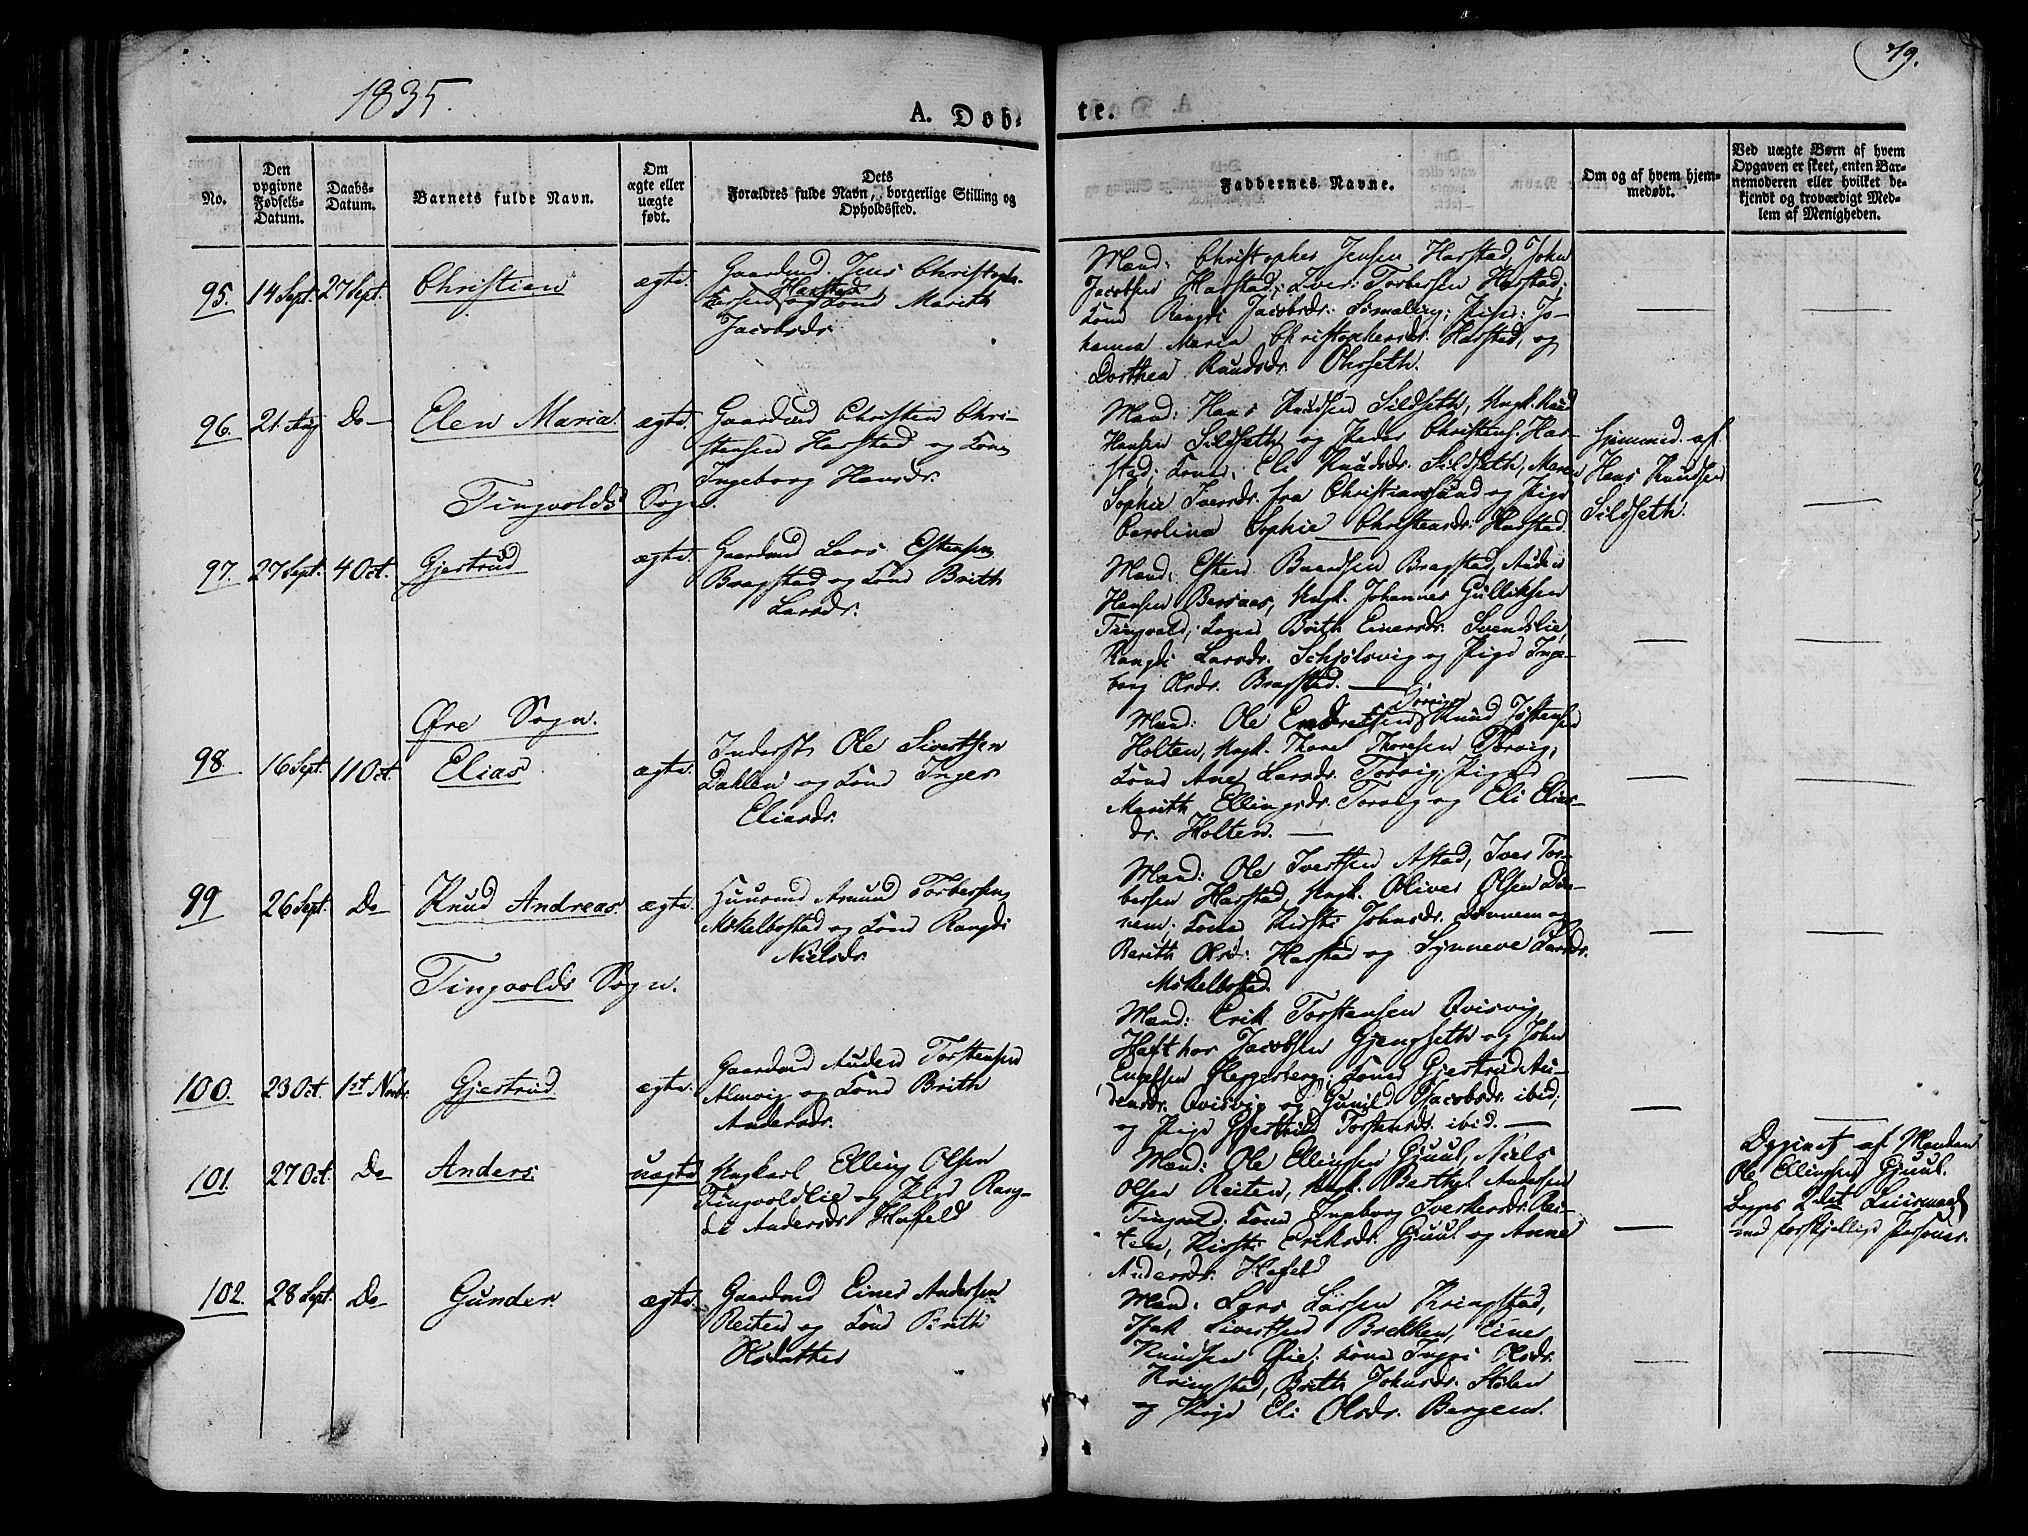 1835.
79.
A. Døb-
te.
No.
Den
opgivne
Fødsels-
Datum.
Daabs-
Datum.
Barnets fulde Navn.
Om
ægte eller
uægte
født.
Dets
Forældres fulde Navn, borgerlige Stilling og
Opholdssted.
Faddernes Navne.
Om og af hvem hjem-
medøbt.
Ved uægte Børn af hvem
Opgaven er skeet, enten Bar-
nemoderen eller hvilket be-
kjendt og troværdigt Med-
lem af Menigheden.
95. 14 Sept. 27 Sept. Christian ægte.
Gaardmd. Jens Christoph-
ersen Harstad og Kone Marith
Jacobsdr.
Mænd: Christopher Jensen Harstad, John
Jacobsen Harstad, Iver Torbersen Harstad;
Kone Rangdi Jacobsdr. ; Pige: Jo-
hanna Maria Christophersdr. Harstad, og
Dorthea Knudsdr. Ohrseth.
96. 21. Aug Do Elen Maria. ægte.
Gaardmd Christen Chri-
stensen Harstad og Kone
Ingeborg Hansdr.
Mænd: Hans Knudsen Sildseth, Ungk. Knud
Hansen Sildseth og Peder Christens. Har-
stad; Kone: Eli Knudsdr. Sildseth, Maren
Sophie Iversdr. fra Christiansund og Pige
Carolina Sophie Christensdr. Harstad.
Hjemmed. af
Hans Knudsen
Sildseth.
Tingvolds Sogn.
97. 27 Sept. 4 Oct. Gjertrud ægte.
Gaardmd Lars Estensen
Bragstad og Kone Brith
Larsdr.
Mænd: Esten Baardsen Bragstad, Auden
Hansen Bersaas, Ungk. Johannes Gulliksen
Tingvold; Kone Brith Einersdr. Svendslie,
Rangdi Larsdr. Schjølsvig og Pige Inge-
borg Olsdr. Bragstad.
Øre Sogn.
98. 16 Sept. 11 Oct. Elias ægte.
Inderst Ole Sivertsen
Dahlen og Kone Inger
Eliasdr.
Mænd: Ole Endretsen Torvig Knud Jostensen
Holten, Ungk. Thorel Thoresen Torvig;
Kone Ane Larsdr. Torvig; Piger
Marith Ellingsdr. Torvig og Eli Elias-
dr. Holten.
99 26 Sept. Do Knud Andreas. ægte.
Huusmd Amund Torbersen
Mokelbostad og Kone Rangdi
Nielsdr.
Mænd: Ole Ivertsen Astad, Iver Tor-
bersen Harstad, Ungk. Oliver Olsen Dön-
nem; Kone Kirsti Johnsdr. Dönnem og
Berith Olsdr. Harstad og Synneve Larsdr.
Mokelbostad.
Tingvolds Sogn.
100. 23 Oct. 1st Novbr. Gjertrud ægte.
Gaardmd Auden Torstensen
Almvig og Kone Brith
Andersdr.
Mænd: Erik Torstensen Qvisvig,
Hafthor Jacobsen Gjengseth og John
Engelsen Heggerberg; Kone Gjertrud Au-
densdr. Qvisvig og Gunil Jacobsdr. ibid;
og Pige Gjertrud Torstensdr. ibid.
101. 27 Oct. Do Anders uægte
Ungkarl Elling Olsen
Tingvoldlie og Pige Rang-
de Andersdr. Hafeld
Mænd: Ole Ellingsen Gjuul, Niels
Olsen Reiten, Ungk. Berthel Andersen
Tingvold; Kone Ingeborg Sverkersdr. Rei-
ten, Kirsti Eriksdr. Gjuul og Anne
Andersdr. Hafeld
af Manden
Ole Ellingsen Gjuul.
Begges 2det Leiermaal
med forskjellige Personer.
102. 28 Sept. Do Gunder. ægte.
Gaardmd Einer Andersen
Reiten og Kone Brith
Olsdatter
Mænd: Lars Larsen Kringstad,
Isak Sivertsen Brekken, Einer
Knudsen Øie; Kone Ingri Olsdr.
Kringstad, Brith Johnsdr. Stølen
og Pige Eli Olsdr. Bergem.